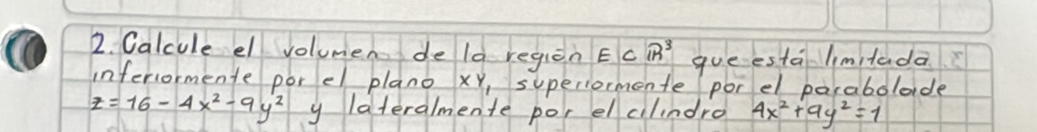 2. Calcule el volumen de la región E ⊂ ℝ³ que está limitada
inferiormente por el plano XY, superiormente por el paraboloide
z = 16 - 4x² - 9y² y lateralmente por el cilindro 4x² + 9y² = 1